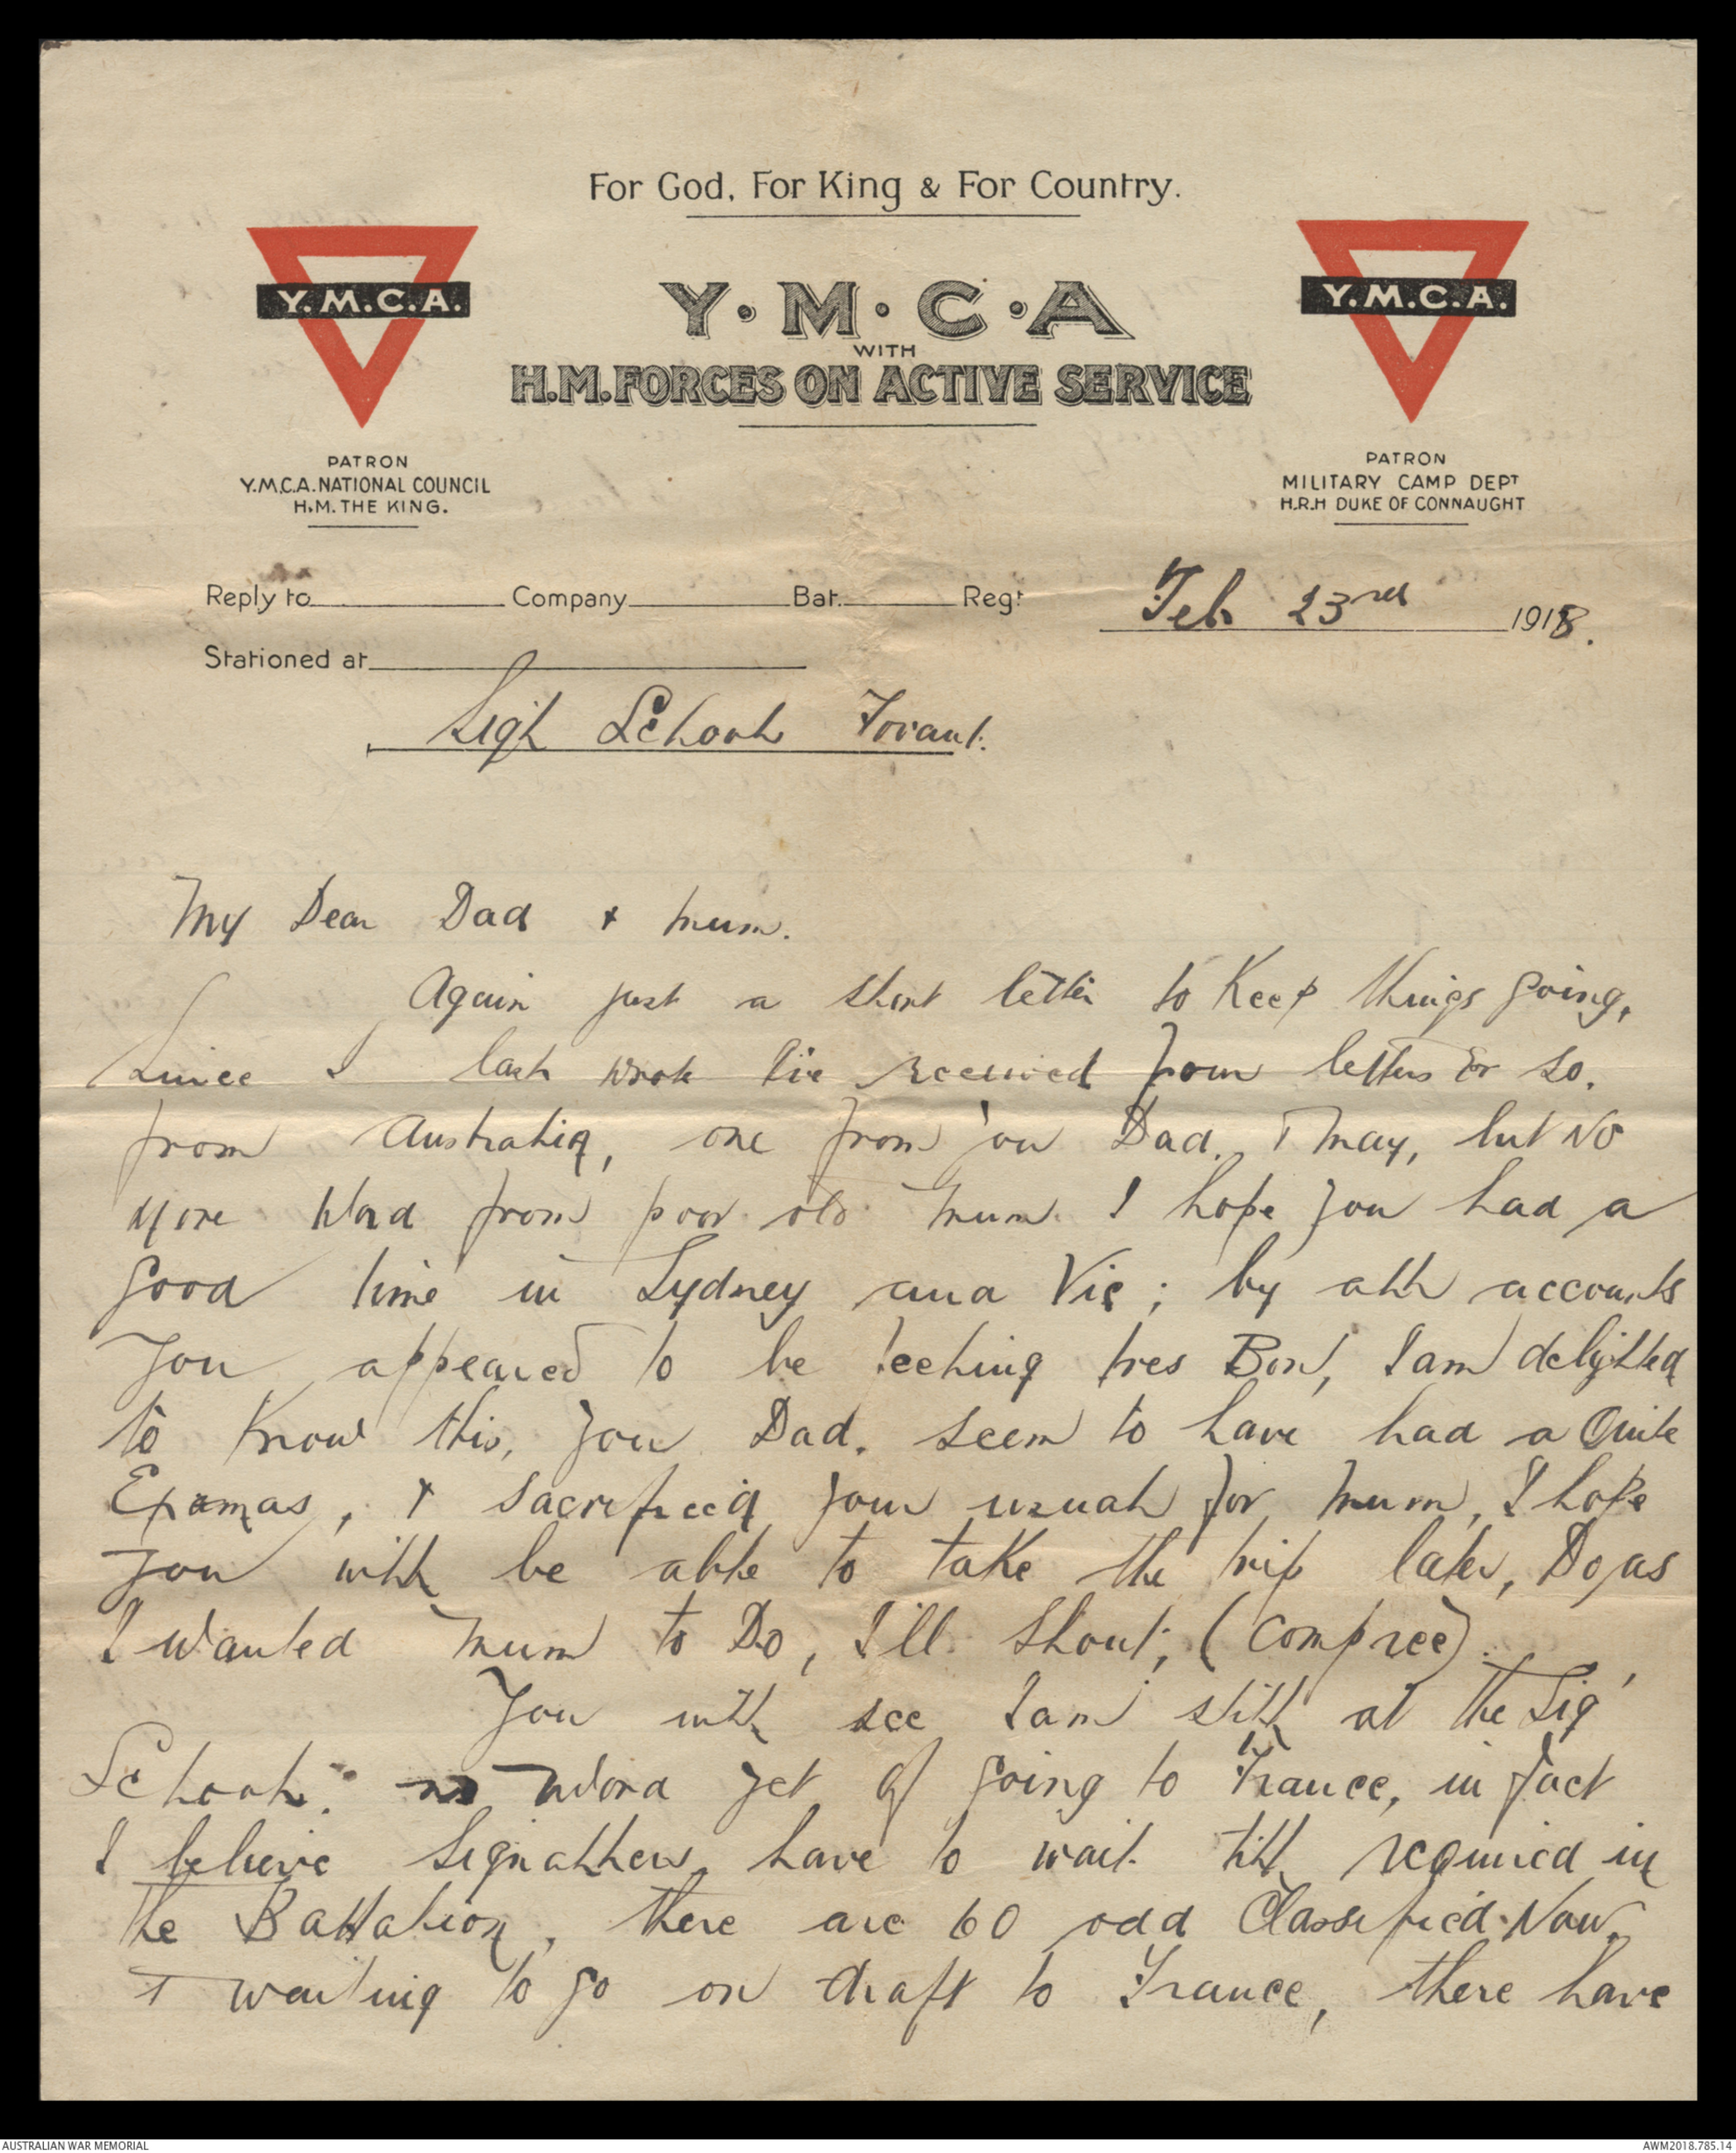 For God, For King & For Country.
Y.M.C.A.
Y.M.C.A
WITH
H.M. FORCES ON ACTIVE SERVICE
Y.M.C.A.
PATRON
Y.M.C.A. NATIONAL COUNCIL
H.M. THE KING.
PATRON
MILITARY CAMP DEPT
H.R.H DUKE OF CONNAUGHT
Reply to Company Bat. Regt Feb 23rd 1918.
Stationed at
Sigl School Fovant.
My Dear Dad & Mum.
Again just a short letter to Keep things going,
Since I last wrote I've received four letters or so.
from Australia, one from you Dad. & May, but No
More Word from poor old Mum. I hope you had a
good time in Sydney and Vic; by all accounts
you appeared to be feeling tres Bon, I am delighted
to know this, you Dad. seem to have had a Quite
Exmas, & sacrificed your usual for Mum, I hope
you will be able to take the trip later, Do, as
I wanted Mum to Do, I'll Shout, (compree).
You will see I am still at the Sig'
School. no word yet of going to France, in fact
I believe Signallers have to wait till required in
the Battalion, there are 60 odd Classified Now,
& waiting to go on draft to France, there have
AUSTRALIAN WAR MEMORIAL
AWM2018.785.14